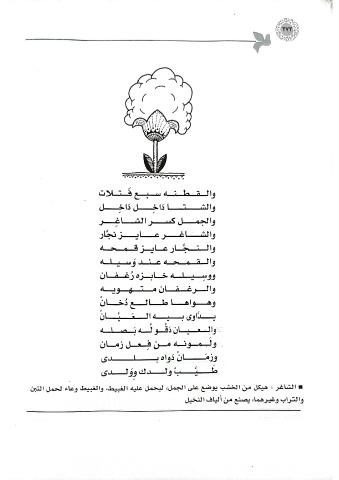 ٢٧٢
والقطنه سبع فتلات
والشتا دَاخِل دَاخِل
والجمل كسر الشاغِر
والشاغر عايز نجَّار
والنجَّار عايز قمحه
والقمحه عند وَسيله
ووسيله خابزه رُغفان
والرغفان متهويه
وهواها طالع دُخانْ
يدَاوى بيه العَيَّانْ
والعيان دَقُّو لُه بَصله
وليمونه منْ فِعل زمان
وزمَانْ دَواه بلدى
طَيِّبْ ولدك وِوِلدى
■ الشاغر : هيكل من الخشب يوضع على الجمل، ليحمل عليه الغبيط، والغبيط وعاء لحمل التبن
والتراب وغيرهما، يصنع من ألياف النخيل